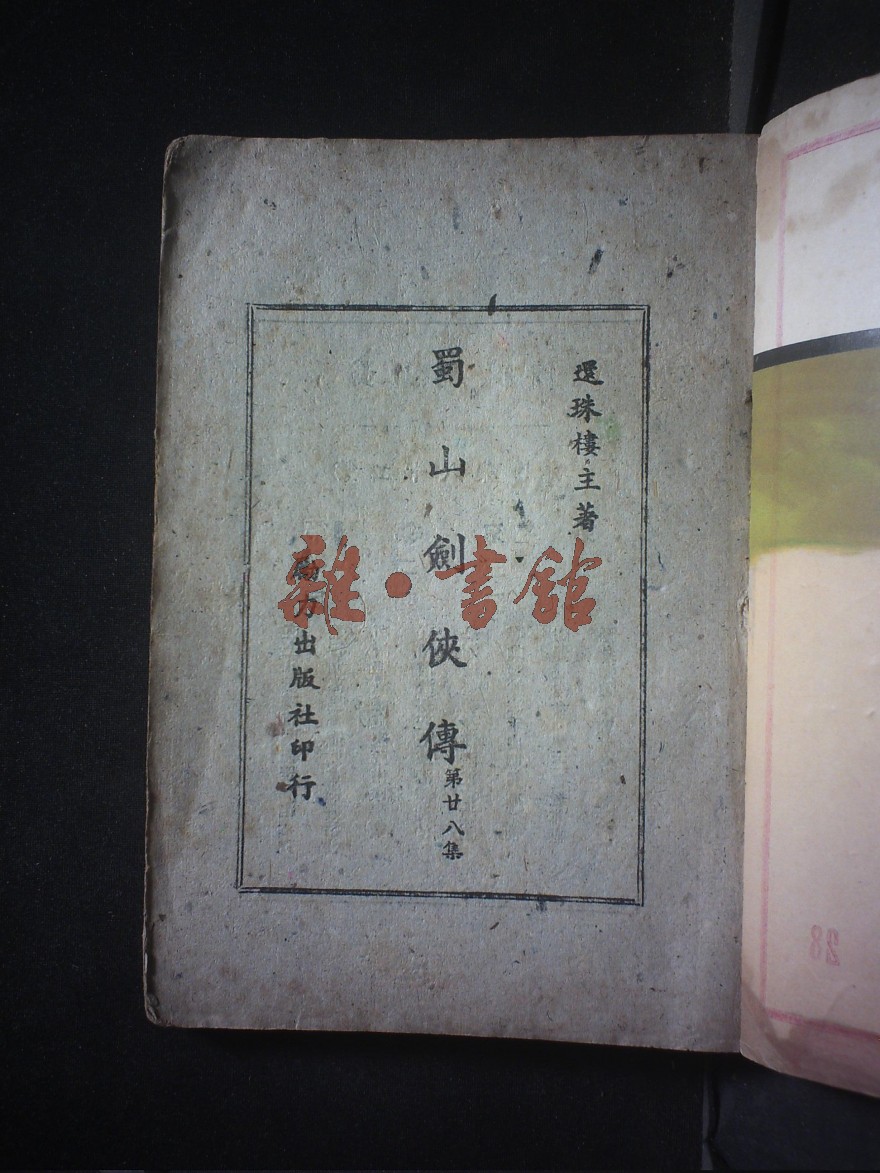 還珠樓主著
蜀山劍俠傳
第廿八集
力出版社印行
雜·書館
28